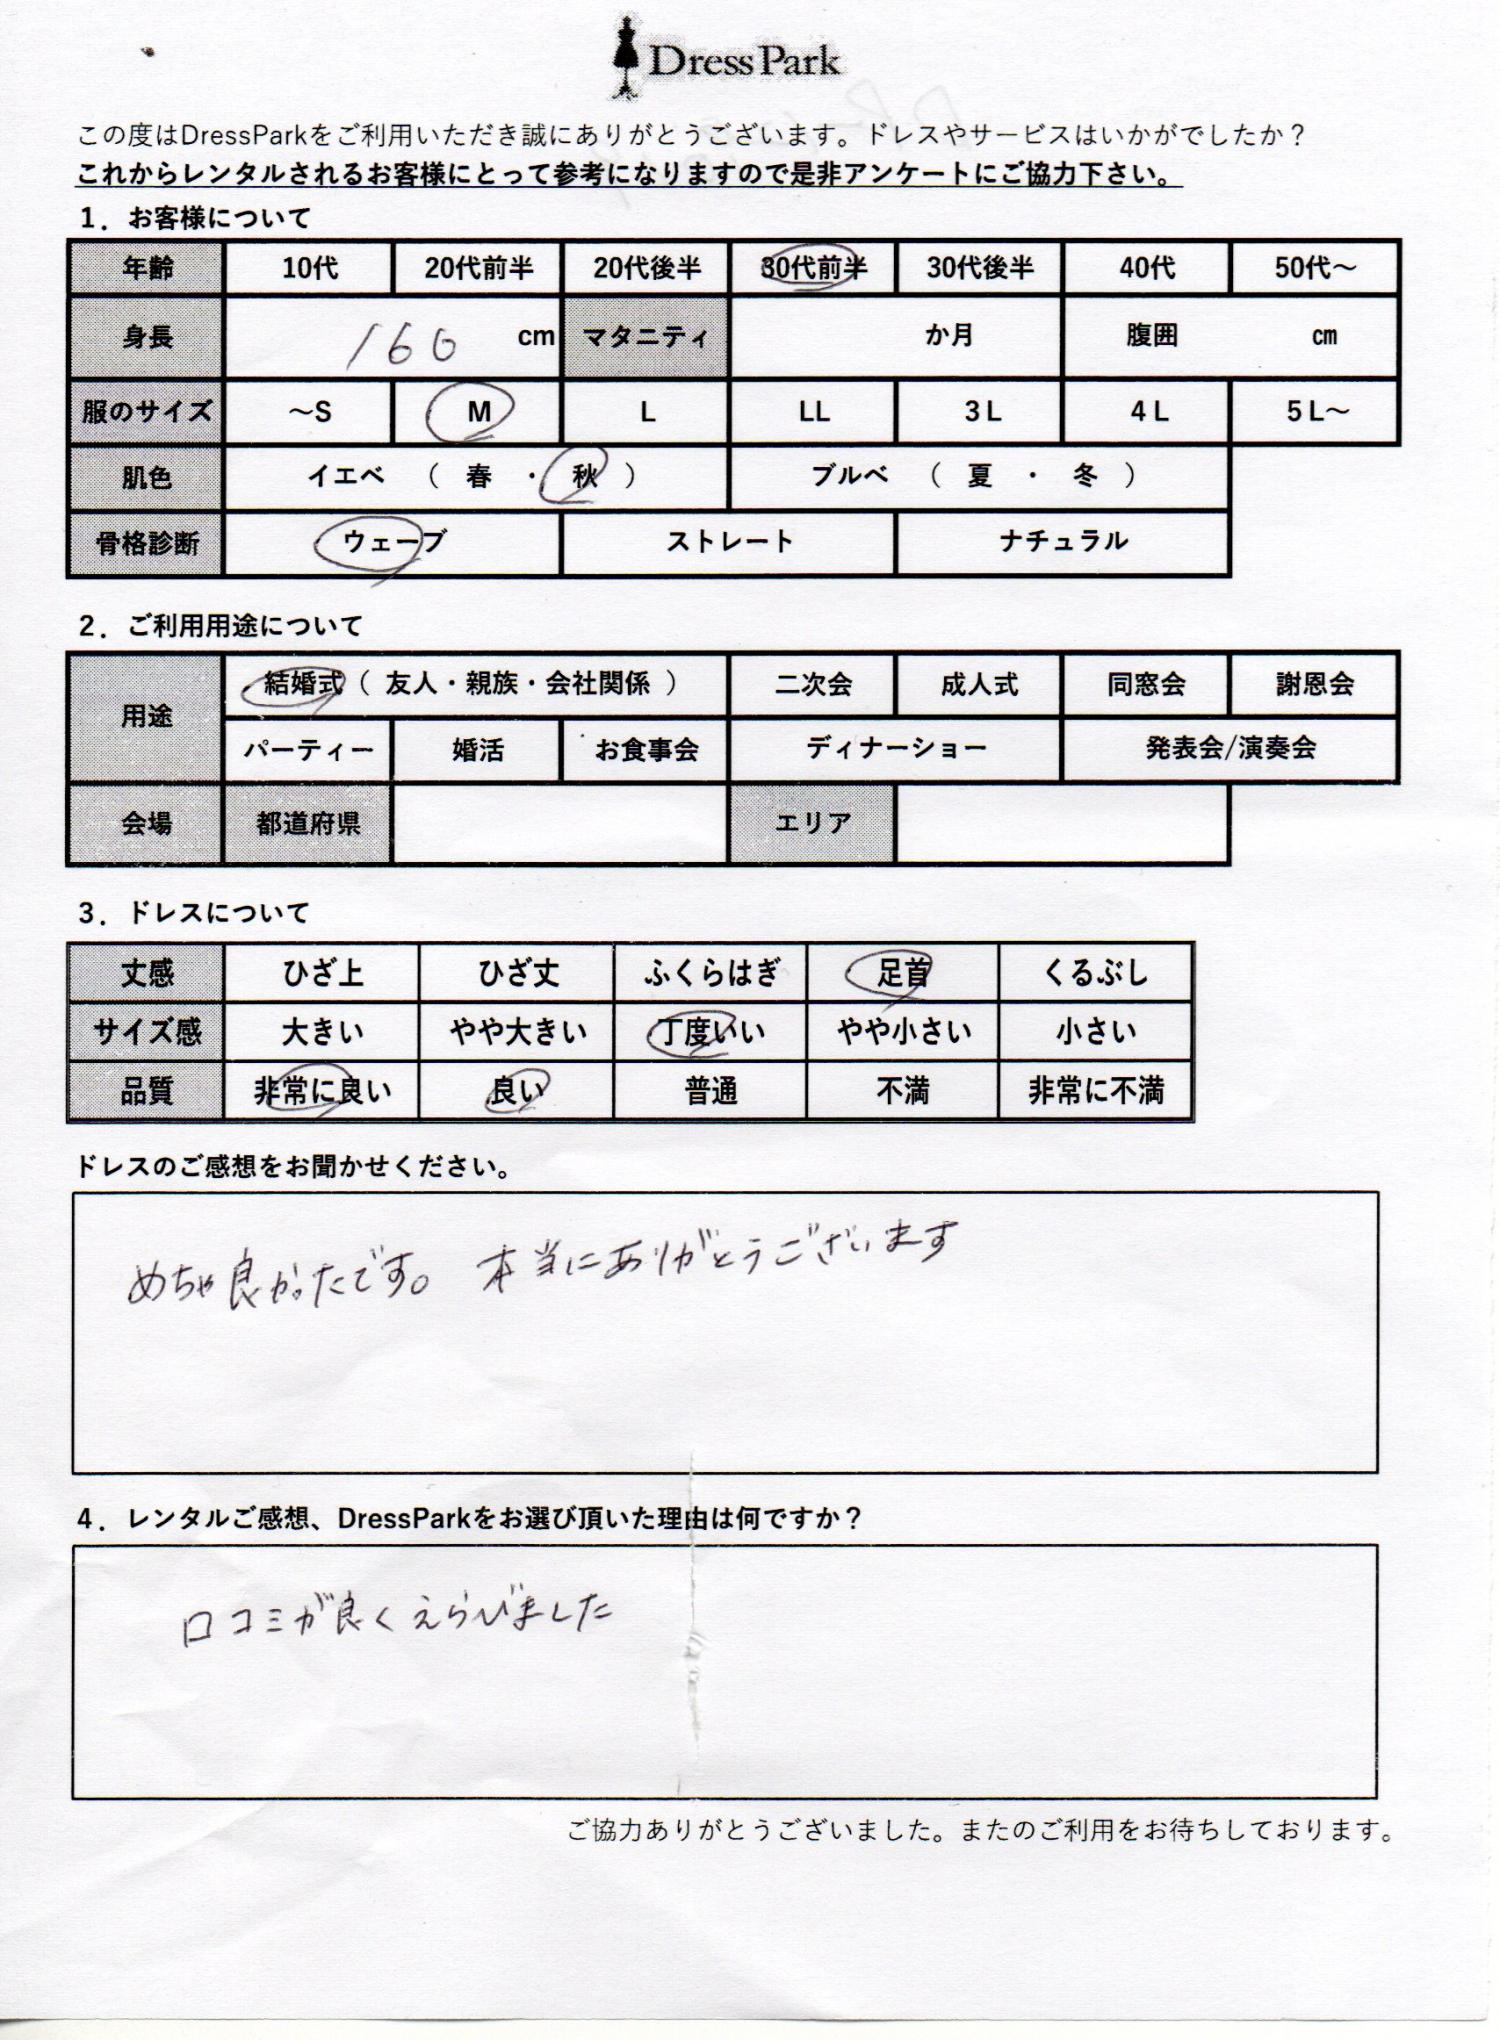 DressPark
この度はDressParkをご利用いただき誠にありがとうございます。ドレスやサービスはいかがでしたか？
これからレンタルされるお客様にとって参考になりますので是非アンケートにご協力下さい。
1．お客様について
年齢 10代 20代前半 20代後半 30代前半 30代後半 40代 50代～
身長 160 cm マタニティ か月 腹囲 ㎝
服のサイズ ～S M L LL 3L 4L 5L～
肌色 イエベ （ 春 ・ 秋 ） ブルベ （ 夏 ・ 冬 ）
骨格診断 ウェーブ ストレート ナチュラル
2．ご利用用途について
用途 結婚式（ 友人・親族・会社関係 ） 二次会 成人式 同窓会 謝恩会
パーティー 婚活 お食事会 ディナーショー 発表会/演奏会
会場 都道府県 エリア
3．ドレスについて
丈感 ひざ上 ひざ丈 ふくらはぎ 足首 くるぶし
サイズ感 大きい やや大きい 丁度いい やや小さい 小さい
品質 非常に良い 良い 普通 不満 非常に不満
ドレスのご感想をお聞かせください。
めちゃ良かったです。 本当にありがとうございます
4．レンタルご感想、DressParkをお選び頂いた理由は何ですか？
口コミが良くえらびました
ご協力ありがとうございました。またのご利用をお待ちしております。